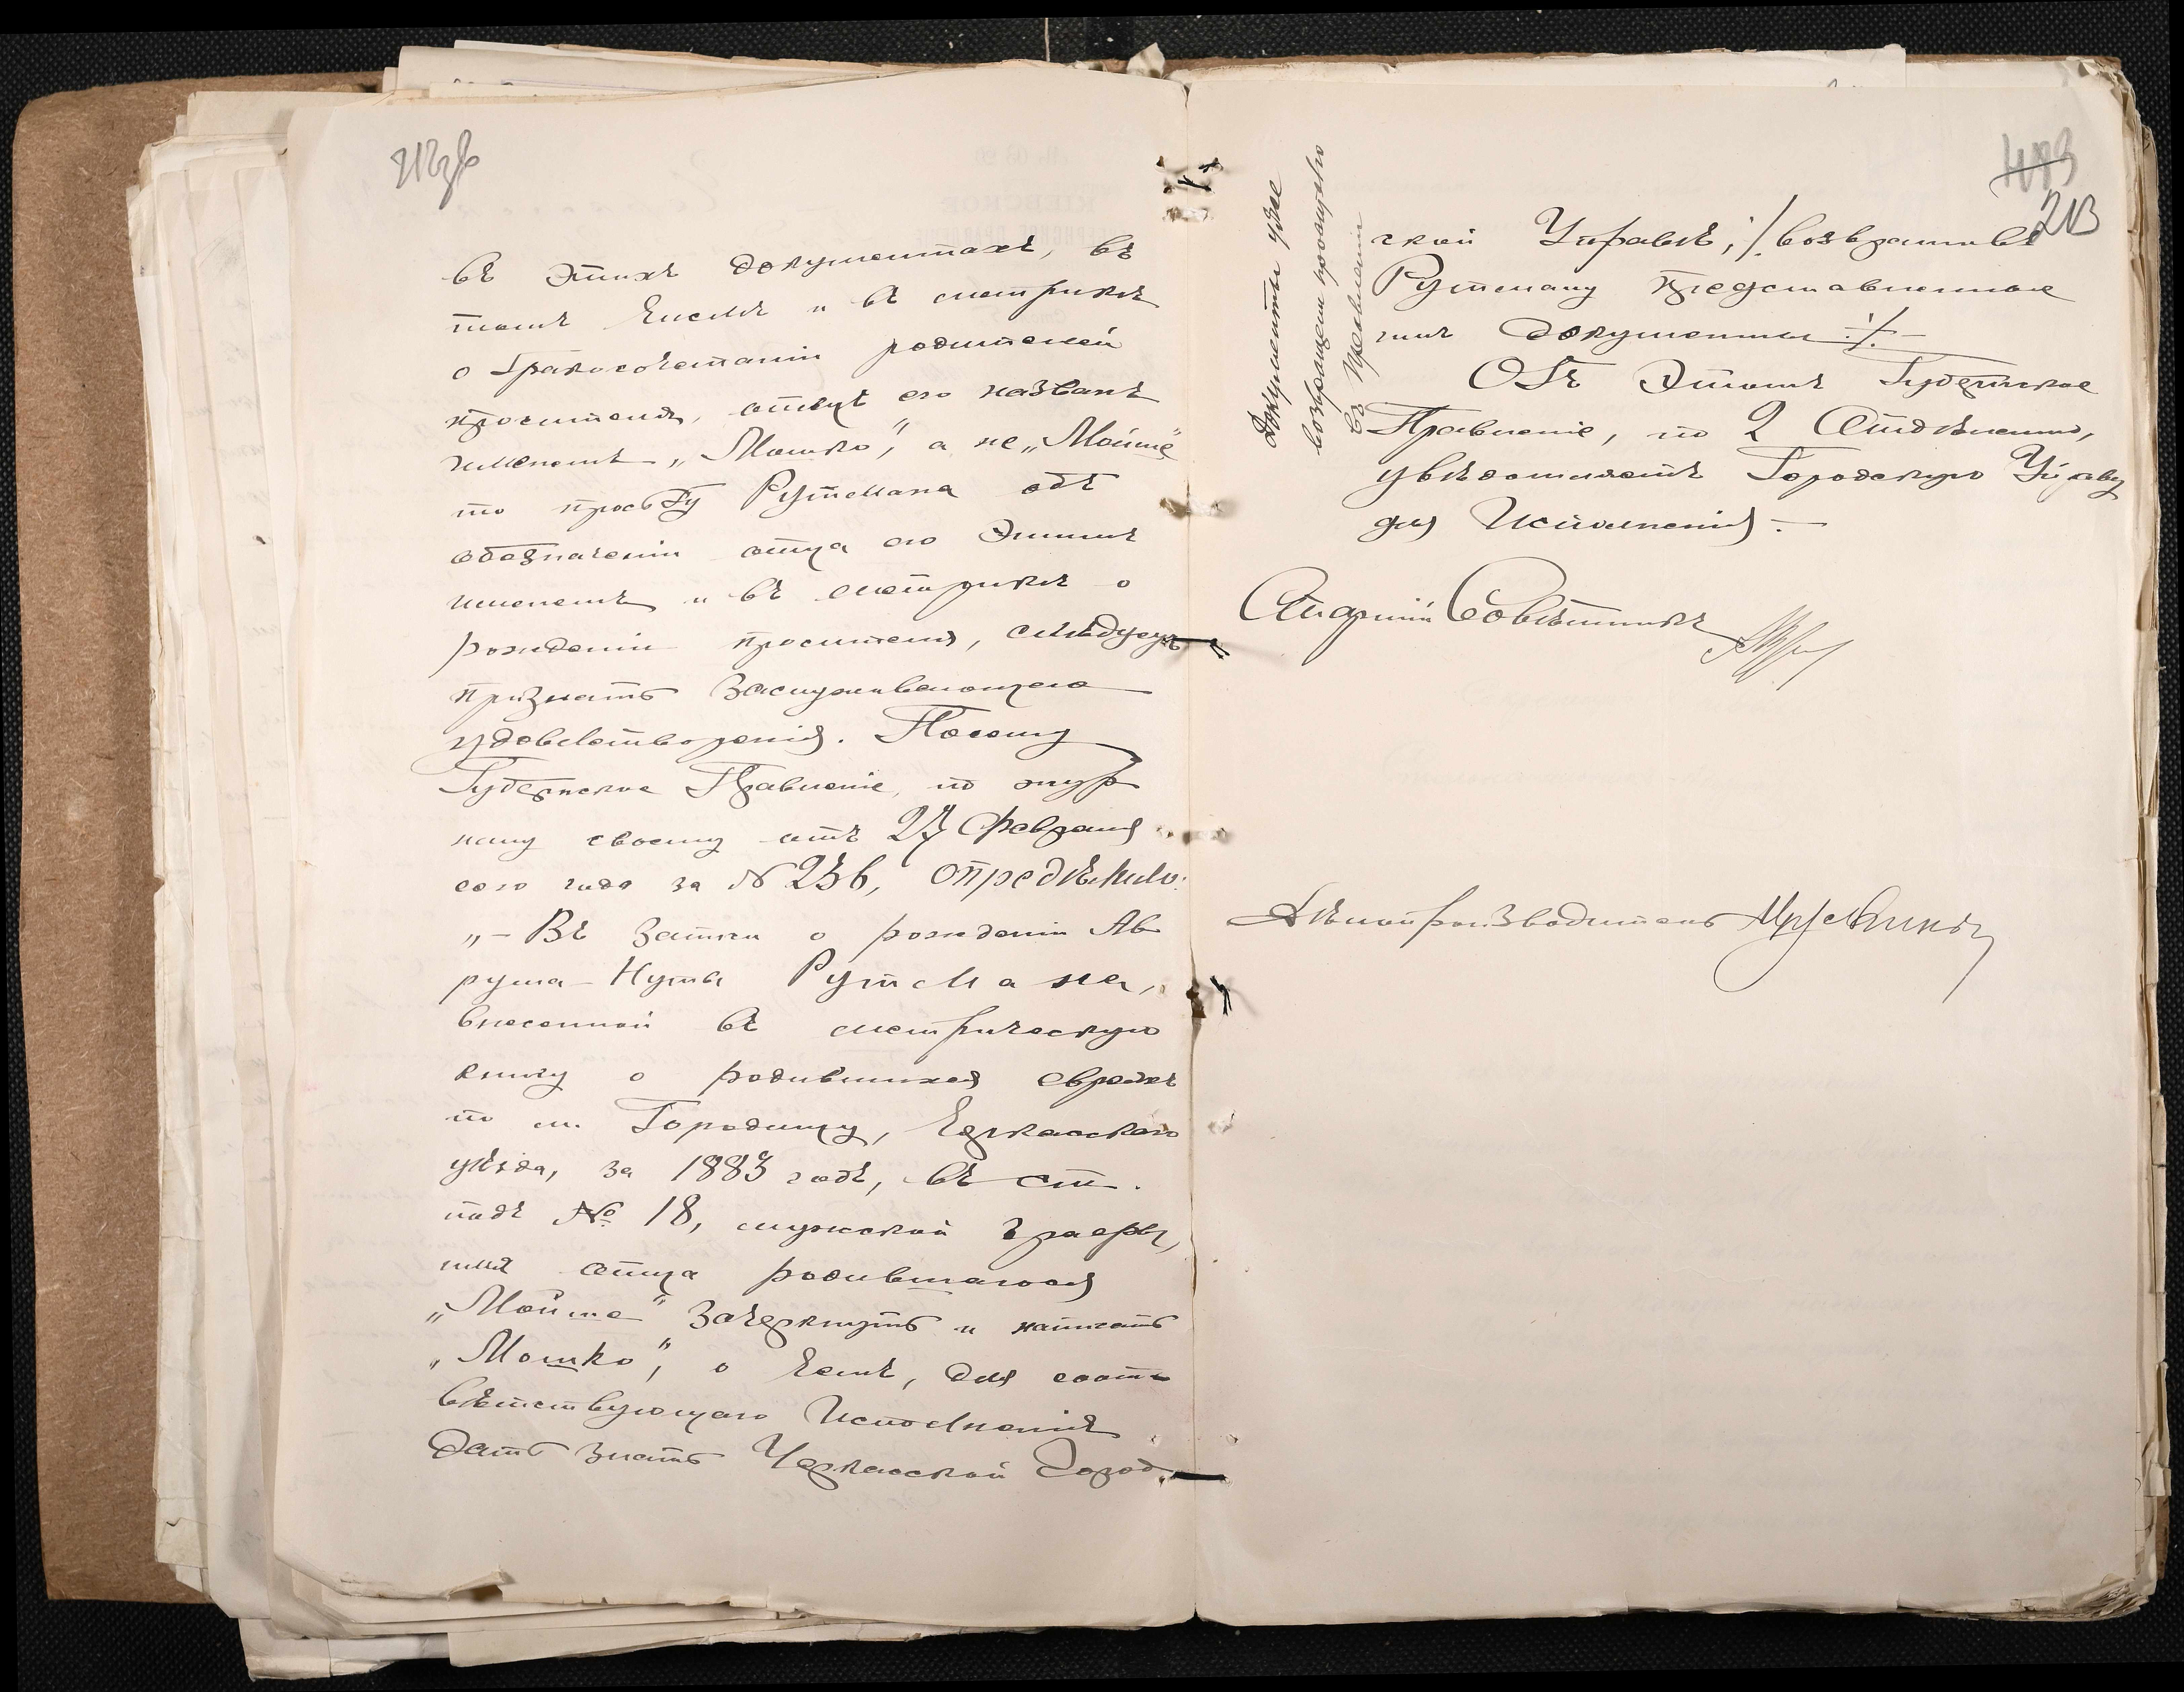 212об
въ этихъ документахъ, въ
томъ числѣ и въ метрикѣ
о бракосочетаніи родителей
просителя, отецъ его названъ
именемъ „Мошко", а не „Мойше"
то просьбу Рутмана объ
обозначеніи отца его этимъ
именемъ и въ метрикѣ о
рожденіи просителя, слѣдуетъ
признать заслуживающею
удовлетворенія. Посему
Губернское Правленіе, по жур
налу своему отъ 27 февраля
сего года за №236, опредѣлило:
„– Въ записи о рожденіи Ав
рума-Нуты Рутмана,
внесенной въ метрическую
книгу о родившихся евреяхъ
по м. Городищу, Черкасскаго
уѣзда, за 1883 годъ, въ ст.
подъ № 18, мужской графы,
имя отца родившагося
„Мойше" зачеркнуть и написать
„Мошко", о чемъ, для соотъ
вѣтствующаго исполненія
дать знать Черкасской Город
213
ской Управѣ, ·/. возвративъ
Рутману представленные
имъ документы ·/. –
Объ этомъ Губернское
Правленіе, по 2 Отдѣленію,
увѣдомляетъ Городскую Управу
для исполненія. –
Документы уже
возвращены просителю
въ Правленіи
Старшій Совѣтникъ
Дѣлопроизводитель